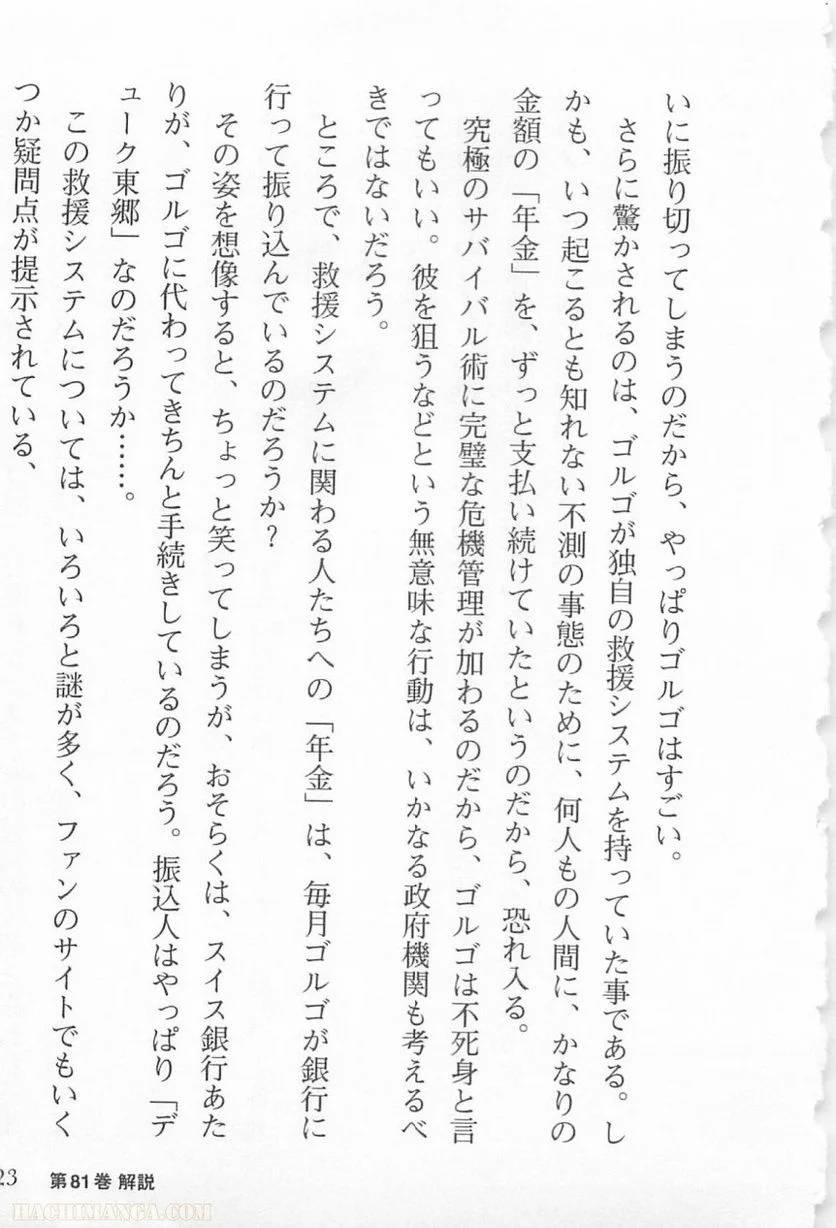 いに振り切ってしまうのだから、やっぱりゴルゴはすごい。
さらに驚かされるのは、ゴルゴが独自の救援システムを持っていた事である。し
かも、いつ起こるとも知れない不測の事態のために、何人もの人間に、かなりの
金額の「年金」を、ずっと支払い続けていたというのだから、恐れ入る。
究極のサバイバル術に完璧な危機管理が加わるのだから、ゴルゴは不死身と言
ってもいい。彼を狙うなどという無意味な行動は、いかなる政府機関も考えるべ
きではないだろう。
ところで、救援システムに関わる人たちへの「年金」は、毎月ゴルゴが銀行に
行って振り込んでいるのだろうか?
その姿を想像すると、ちょっと笑ってしまうが、おそらくは、スイス銀行あた
りが、ゴルゴに代わってきちんと手続きしているのだろう。振込人はやっぱり「デ
ューク東郷」なのだろうか……。
この救援システムについては、いろいろと謎が多く、ファンのサイトでもいく
つか疑問点が提示されている、
23 第81巻 解説
HACHIMANGA.COM